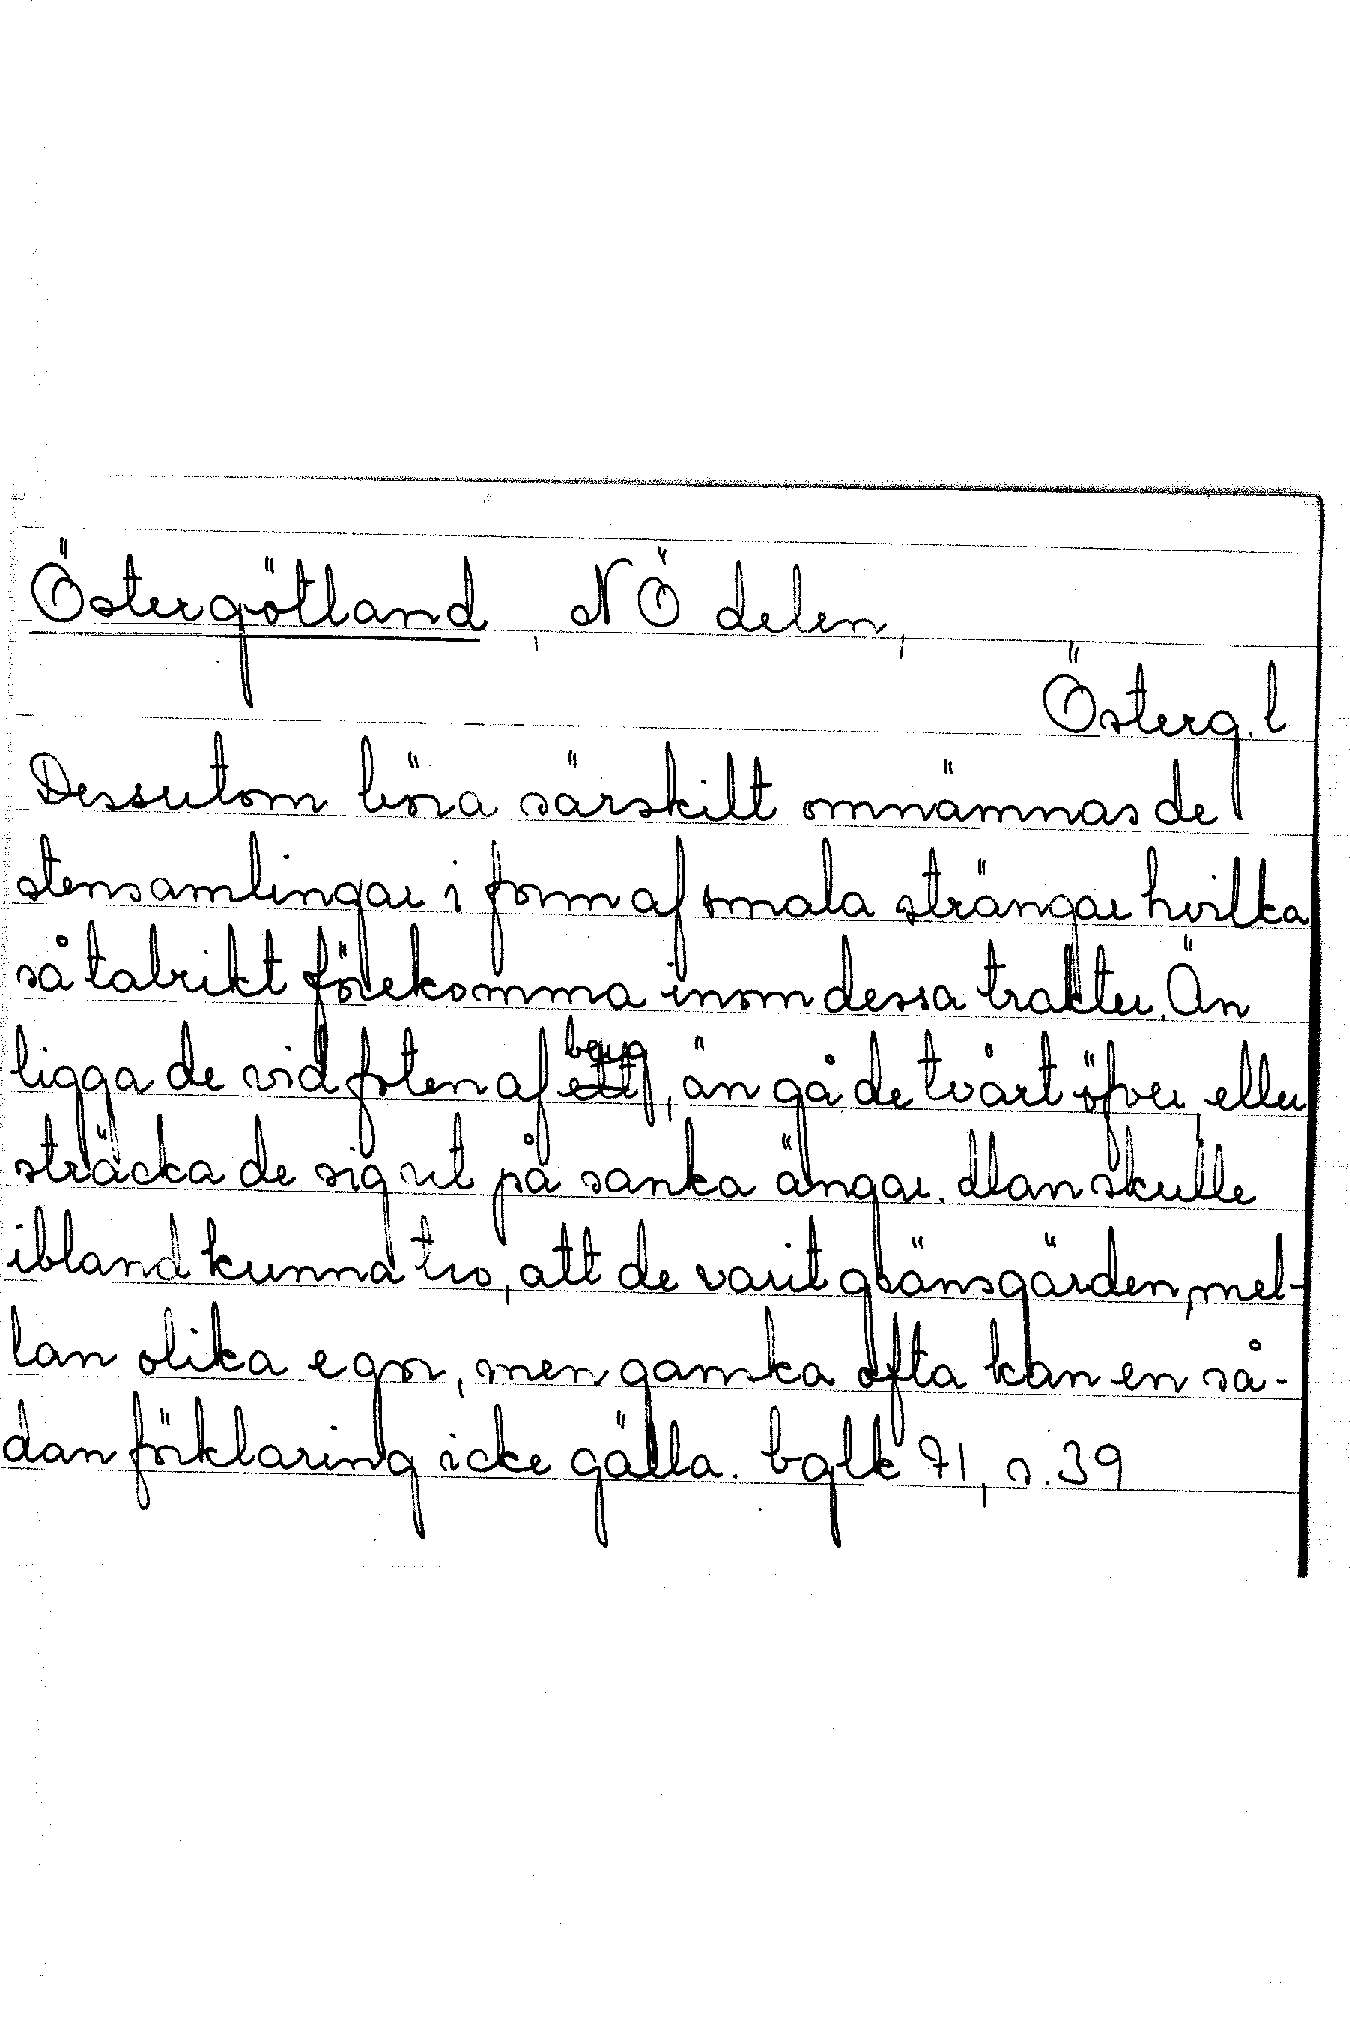 Östergötland, NÖ delen,
Österg. l
Dessutom böra särskilt omnämnas de
stensamlingar i form af smala strängar hvilka
så talrikt förekomma inom dessa trakter. Än
ligga de vid foten af berg, än gå de tvärt öfver, eller
sträcka de sig ut på sanka ängar. Man skulle
ibland kunna tro, att de varit gränsgärden, mel-
lan olika egor, men ganska ofta kan en så-
dan förklaring icke gälla. bglk 71, s. 39